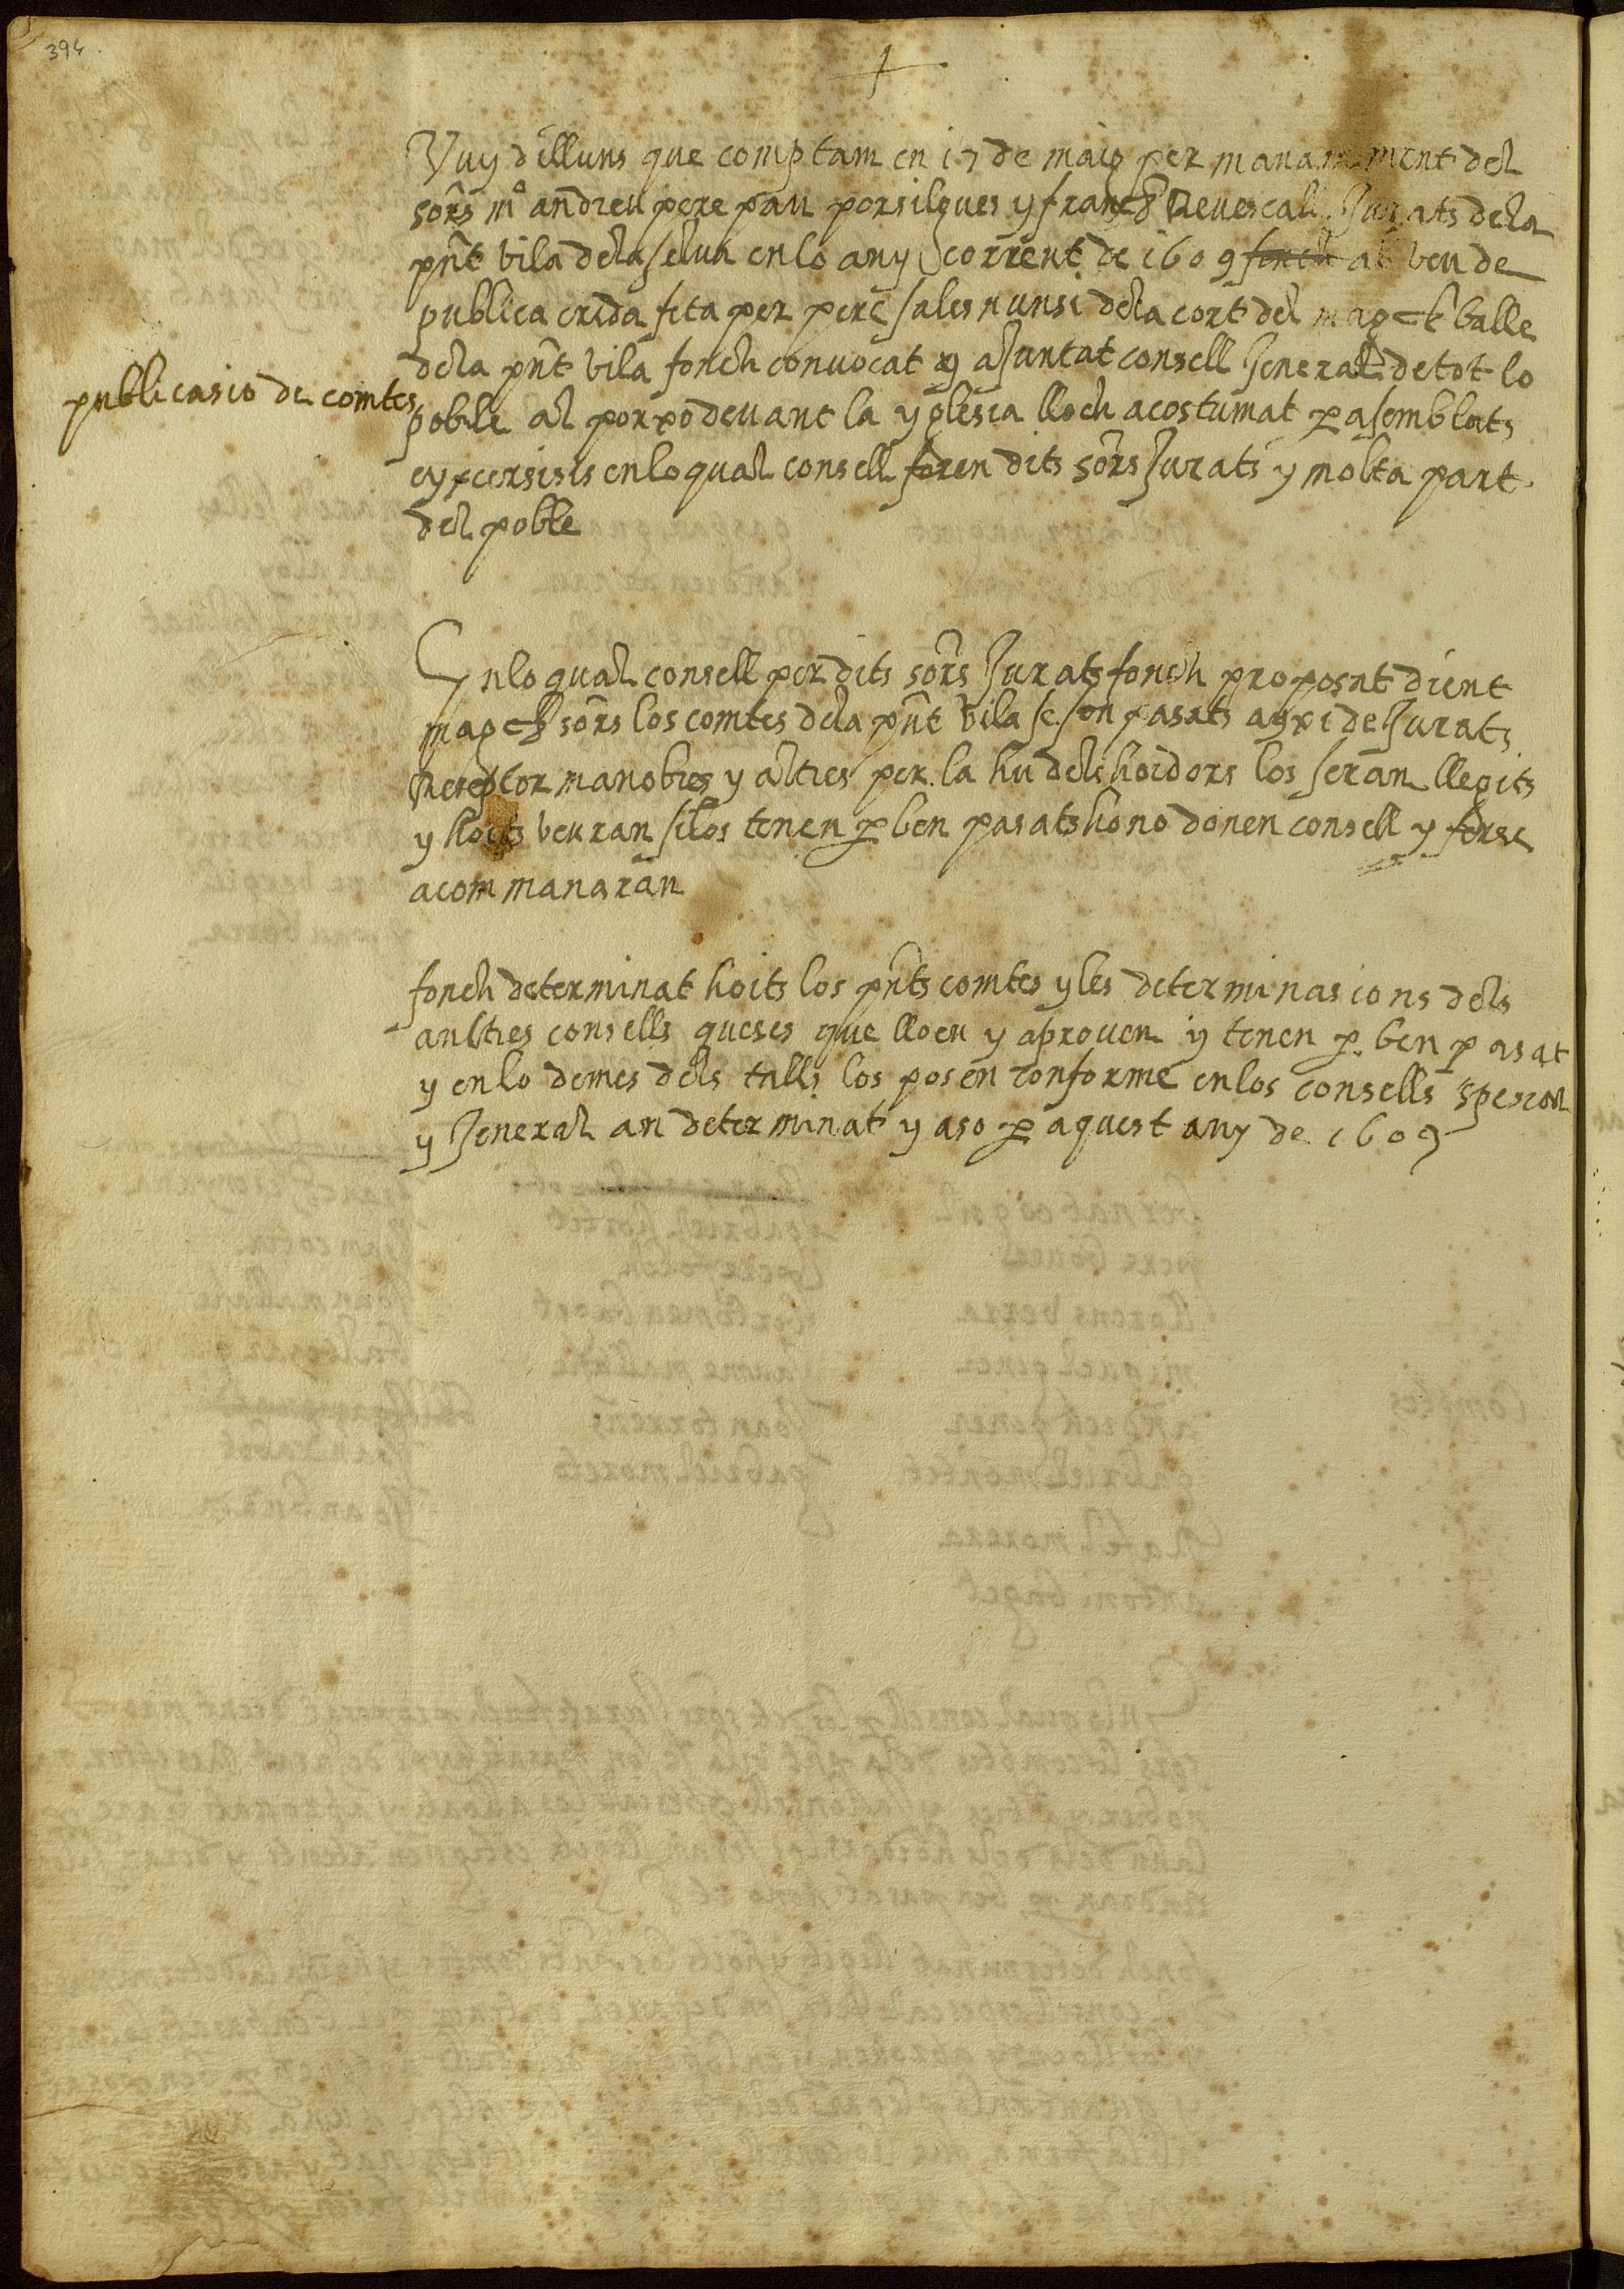 394
Vuy dilluns que comptam en 17 de maig per manamament del
sors mº andreu pere pau persilques y franch Revescall Jurats dela
pnt vila dela selva en lo any corrent de 1609 fonch ab veu de
publica crida feta per pere sales nunsi dela cort del magch balle
dela pnt vila fonch convocat y ajuntat consell Jeneral de tot lo
publicasio de comtes
poble al porxo devant la yglesia lloch acostumat p asemblats
eyxersisis en lo qual consell foren dits sors Jurats y molta part
del poble
En lo qual consell per dits sors Jurats fonch proposat dient
magchs sors los comtes dela pnt vila se son pasats axi de Jurats
Reseptor manobres y altres per la hu dels hoidors los seran llegits
y hoits veuran si los tenen p ben pasats ho no donen consell y ferse
a com manaran
fonch determinat hoits los pnts comtes y les determinasions dels
anltres consells queses que lloen y aproven y tenen p ben pasat
y en lo demes dels talls los posen conforme en los consells spesial
y Jeneral an determinat y aso p aquest any de 1609